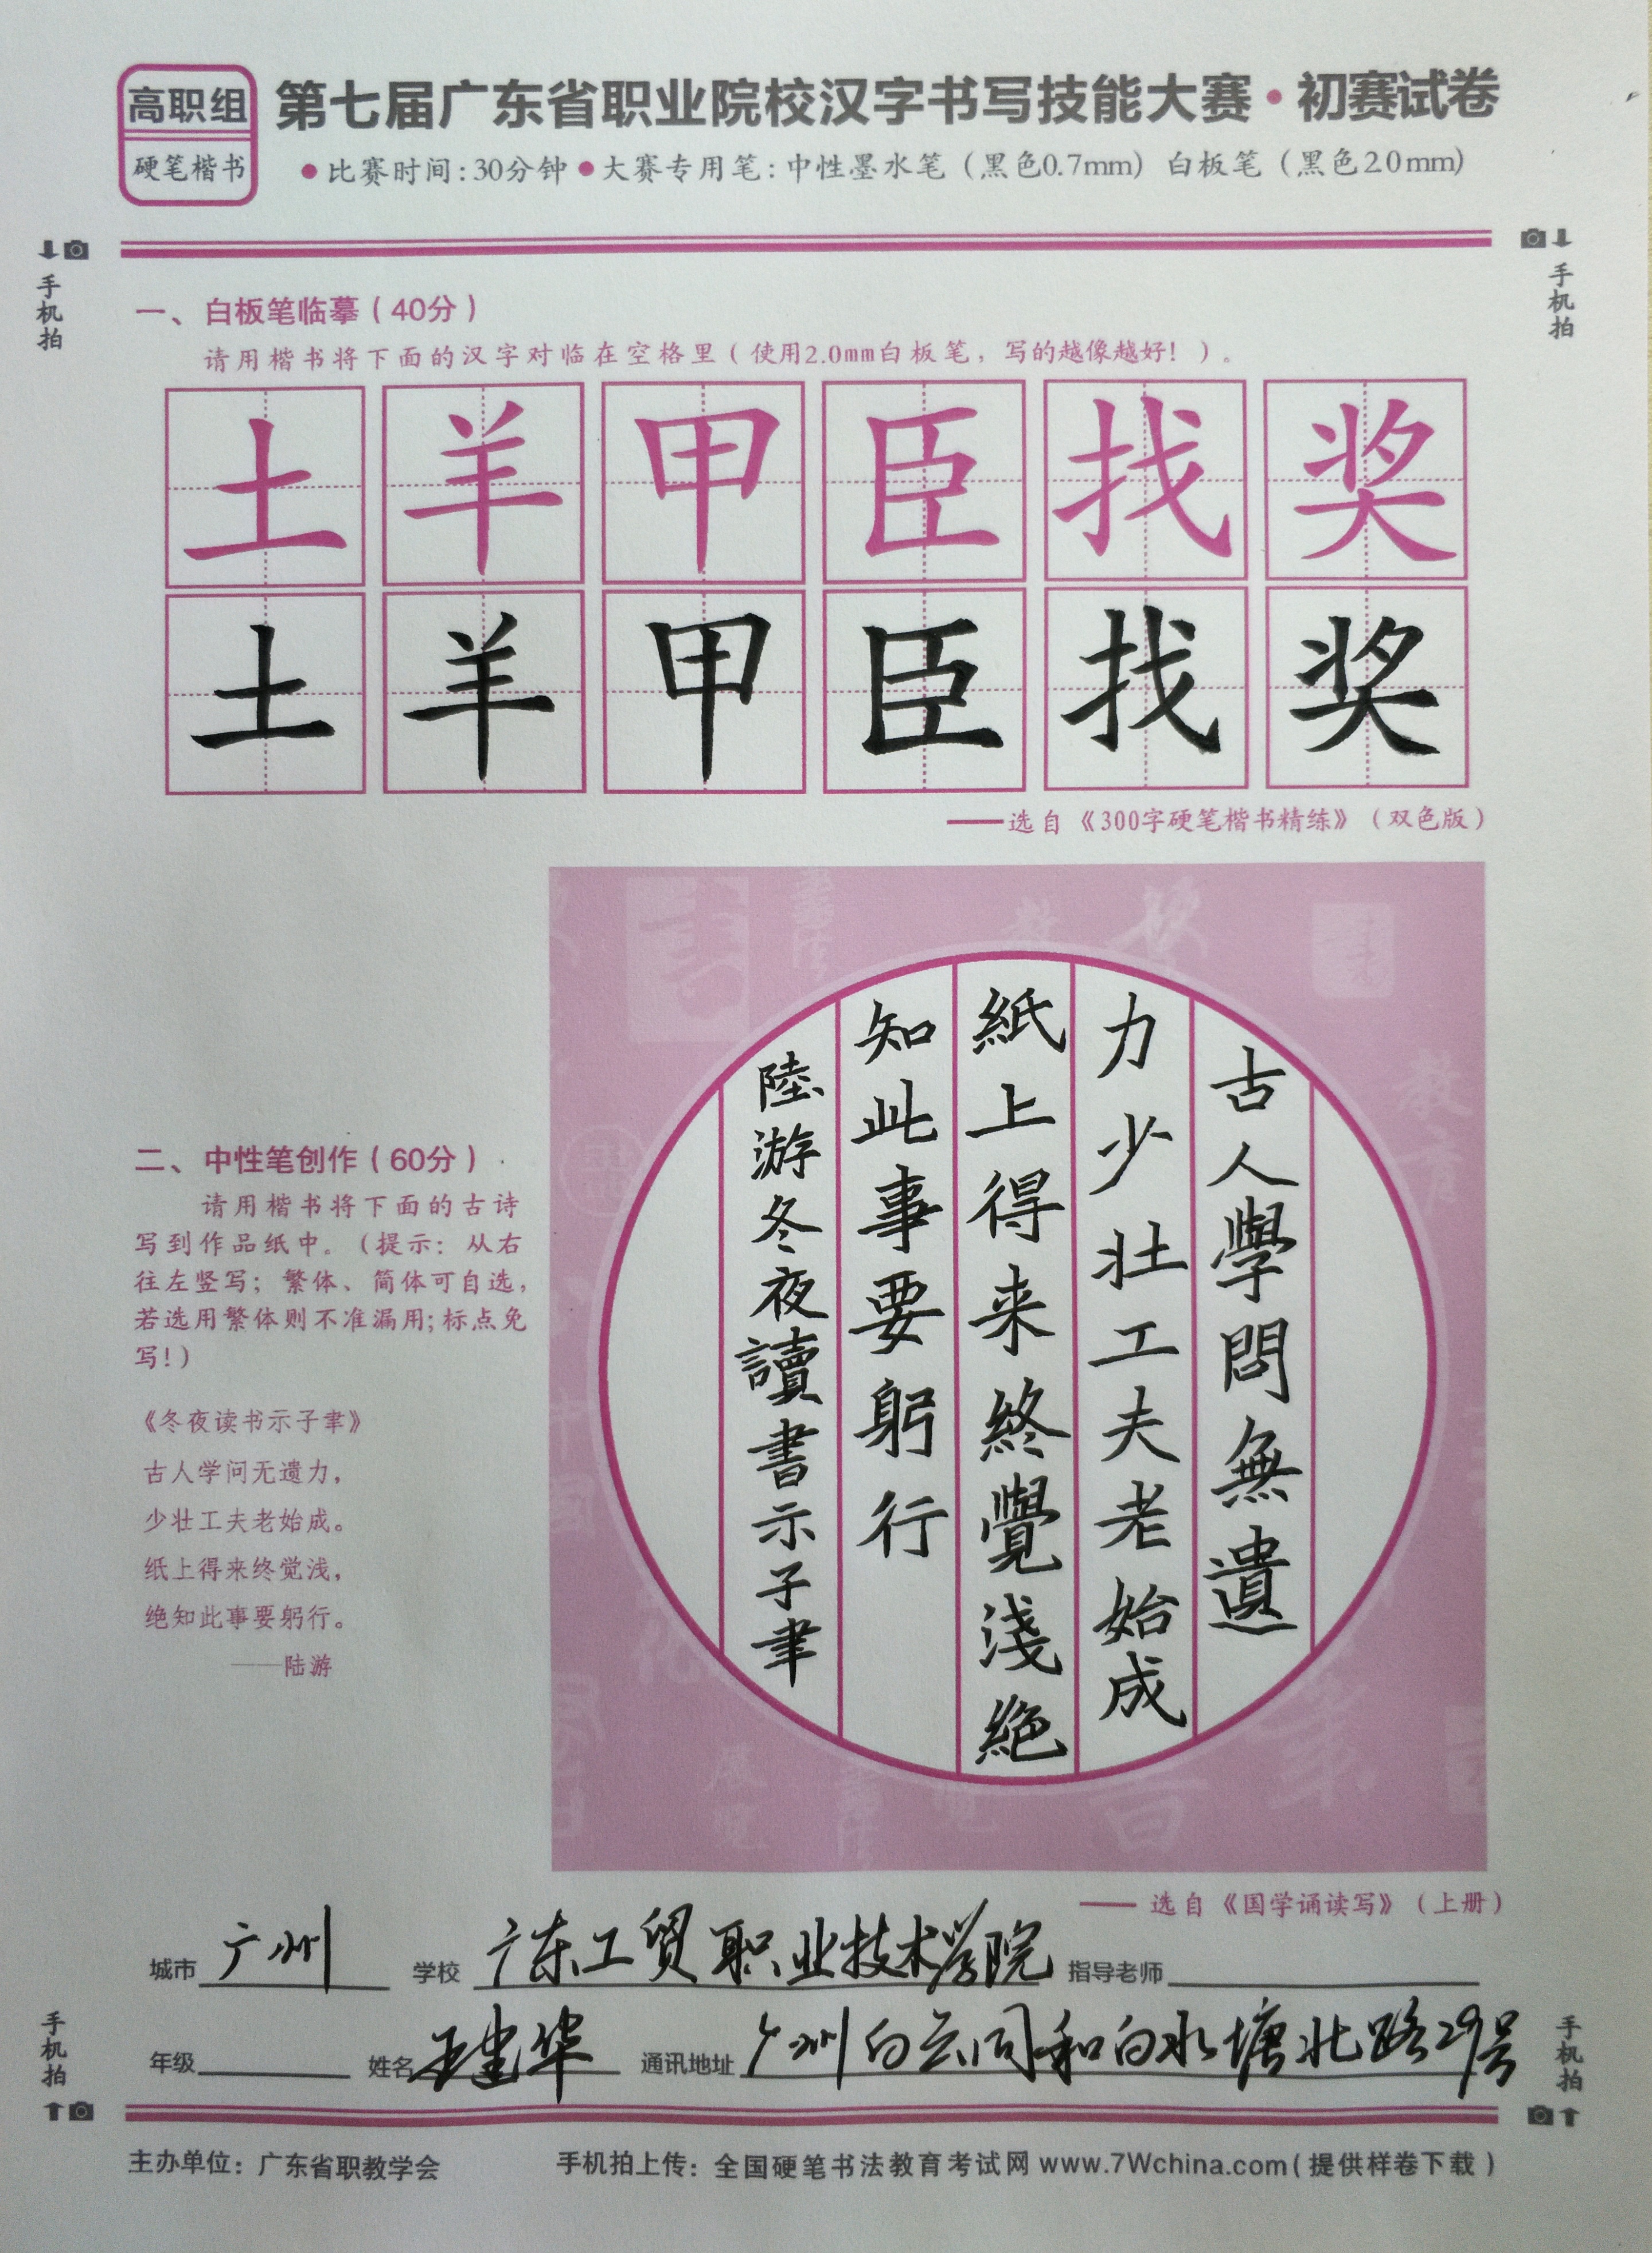 高职组
硬笔楷书
第七届广东省职业院校汉字书写技能大赛·初赛试卷
●比赛时间:30分钟●大赛专用笔:中性墨水笔（黑色0.7mm）白板笔（黑色2.0mm）
手机拍
手机拍
一、白板笔临摹（40分）
请用楷书将下面的汉字对临在空格里（使用2.0mm白板笔，写的越像越好！）。
土羊甲臣找奖
土羊甲臣找奖
——选自《300字硬笔楷书精练》（双色版）
二、中性笔创作（60分）
请用楷书将下面的古诗
写到作品纸中。（提示：从右
往左竖写；繁体、简体可自选，
若选用繁体则不准漏用；标点免
写！）
《冬夜读书示子聿》
古人学问无遗力，
少壮工夫老始成。
纸上得来终觉浅，
绝知此事要躬行。
——陆游
古人學問無遺
力少壮工夫老始成
紙上得来終覺淺絕
知此事要躬行
陸游冬夜讀書示子聿
——选自《国学诵读写》（上册）
城市 广州 学校 广东工贸职业技术学院 指导老师
年级 姓名 王建华 通讯地址 广州白云同和白水塘北路29号
手机拍
手机拍
主办单位：广东省职教学会 手机拍上传：全国硬笔书法教育考试网 www.7Wchina.com（提供样卷下载）